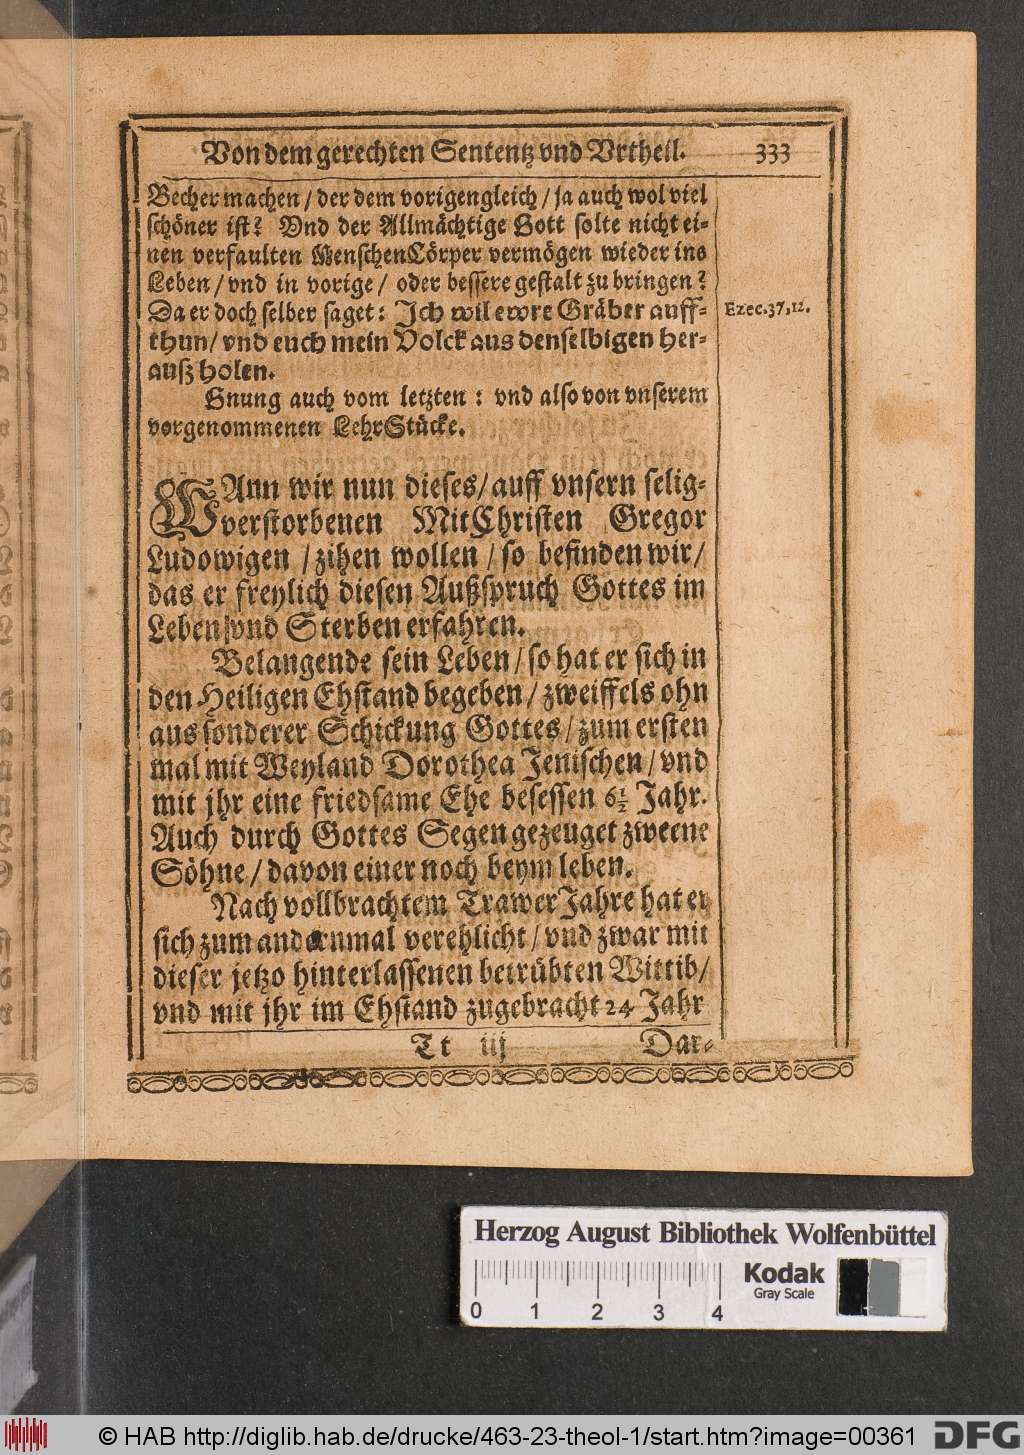 Von dem gerechten Sententz vnd Vrtheil. 333
Becher machen / der dem vorigen gleich / ja auch wol viel
schöner ist? Vnd der Allmächtige Gott solte nicht ei-
nen verfaulten MenschenCörper vermögen wieder ins
Leben / vnd in vorige / oder bessere gestalt zu bringen?
Da er doch selber saget: Ich wil ewre Gräber auff-
Ezec. 37, 12.
thun / vnd euch mein Volck aus denselbigen her-
auß holen.
Gnung auch vom letzten: vnd also von vnserem
vorgenommenen LehrStücke.
WAnn wir nun dieses / auff vnsern selig-
verstorbenen MitChristen Gregor
Ludowigen / zihen wollen / so befinden wir /
das er freylich diesen Außspruch Gottes im
Leben vnd Sterben erfahren.
Belangende sein Leben / so hat er sich in
den Heiligen Ehstand begeben / zweiffels ohn
aus sonderer Schickung Gottes / zum ersten
mal mit Weyland Dorothea Jenischen / vnd
mit jhr eine friedsame Ehe besessen 6½ Jahr.
Auch durch Gottes Segen gezeuget zweene
Söhne / davon einer noch beym leben.
Nach vollbrachtem TrawerJahre hat er
sich zum andernmal verehlicht / vnd zwar mit
dieser jetzo hinterlassenen betrübten Wittib /
vnd mit jhr im Ehstand zugebracht 24 Jahr
Tt iij Dar-
Herzog August Bibliothek Wolfenbüttel
Kodak
Gray Scale
0 1 2 3 4
© HAB http://diglib.hab.de/drucke/463-23-theol-1/start.htm?image=00361
DFG